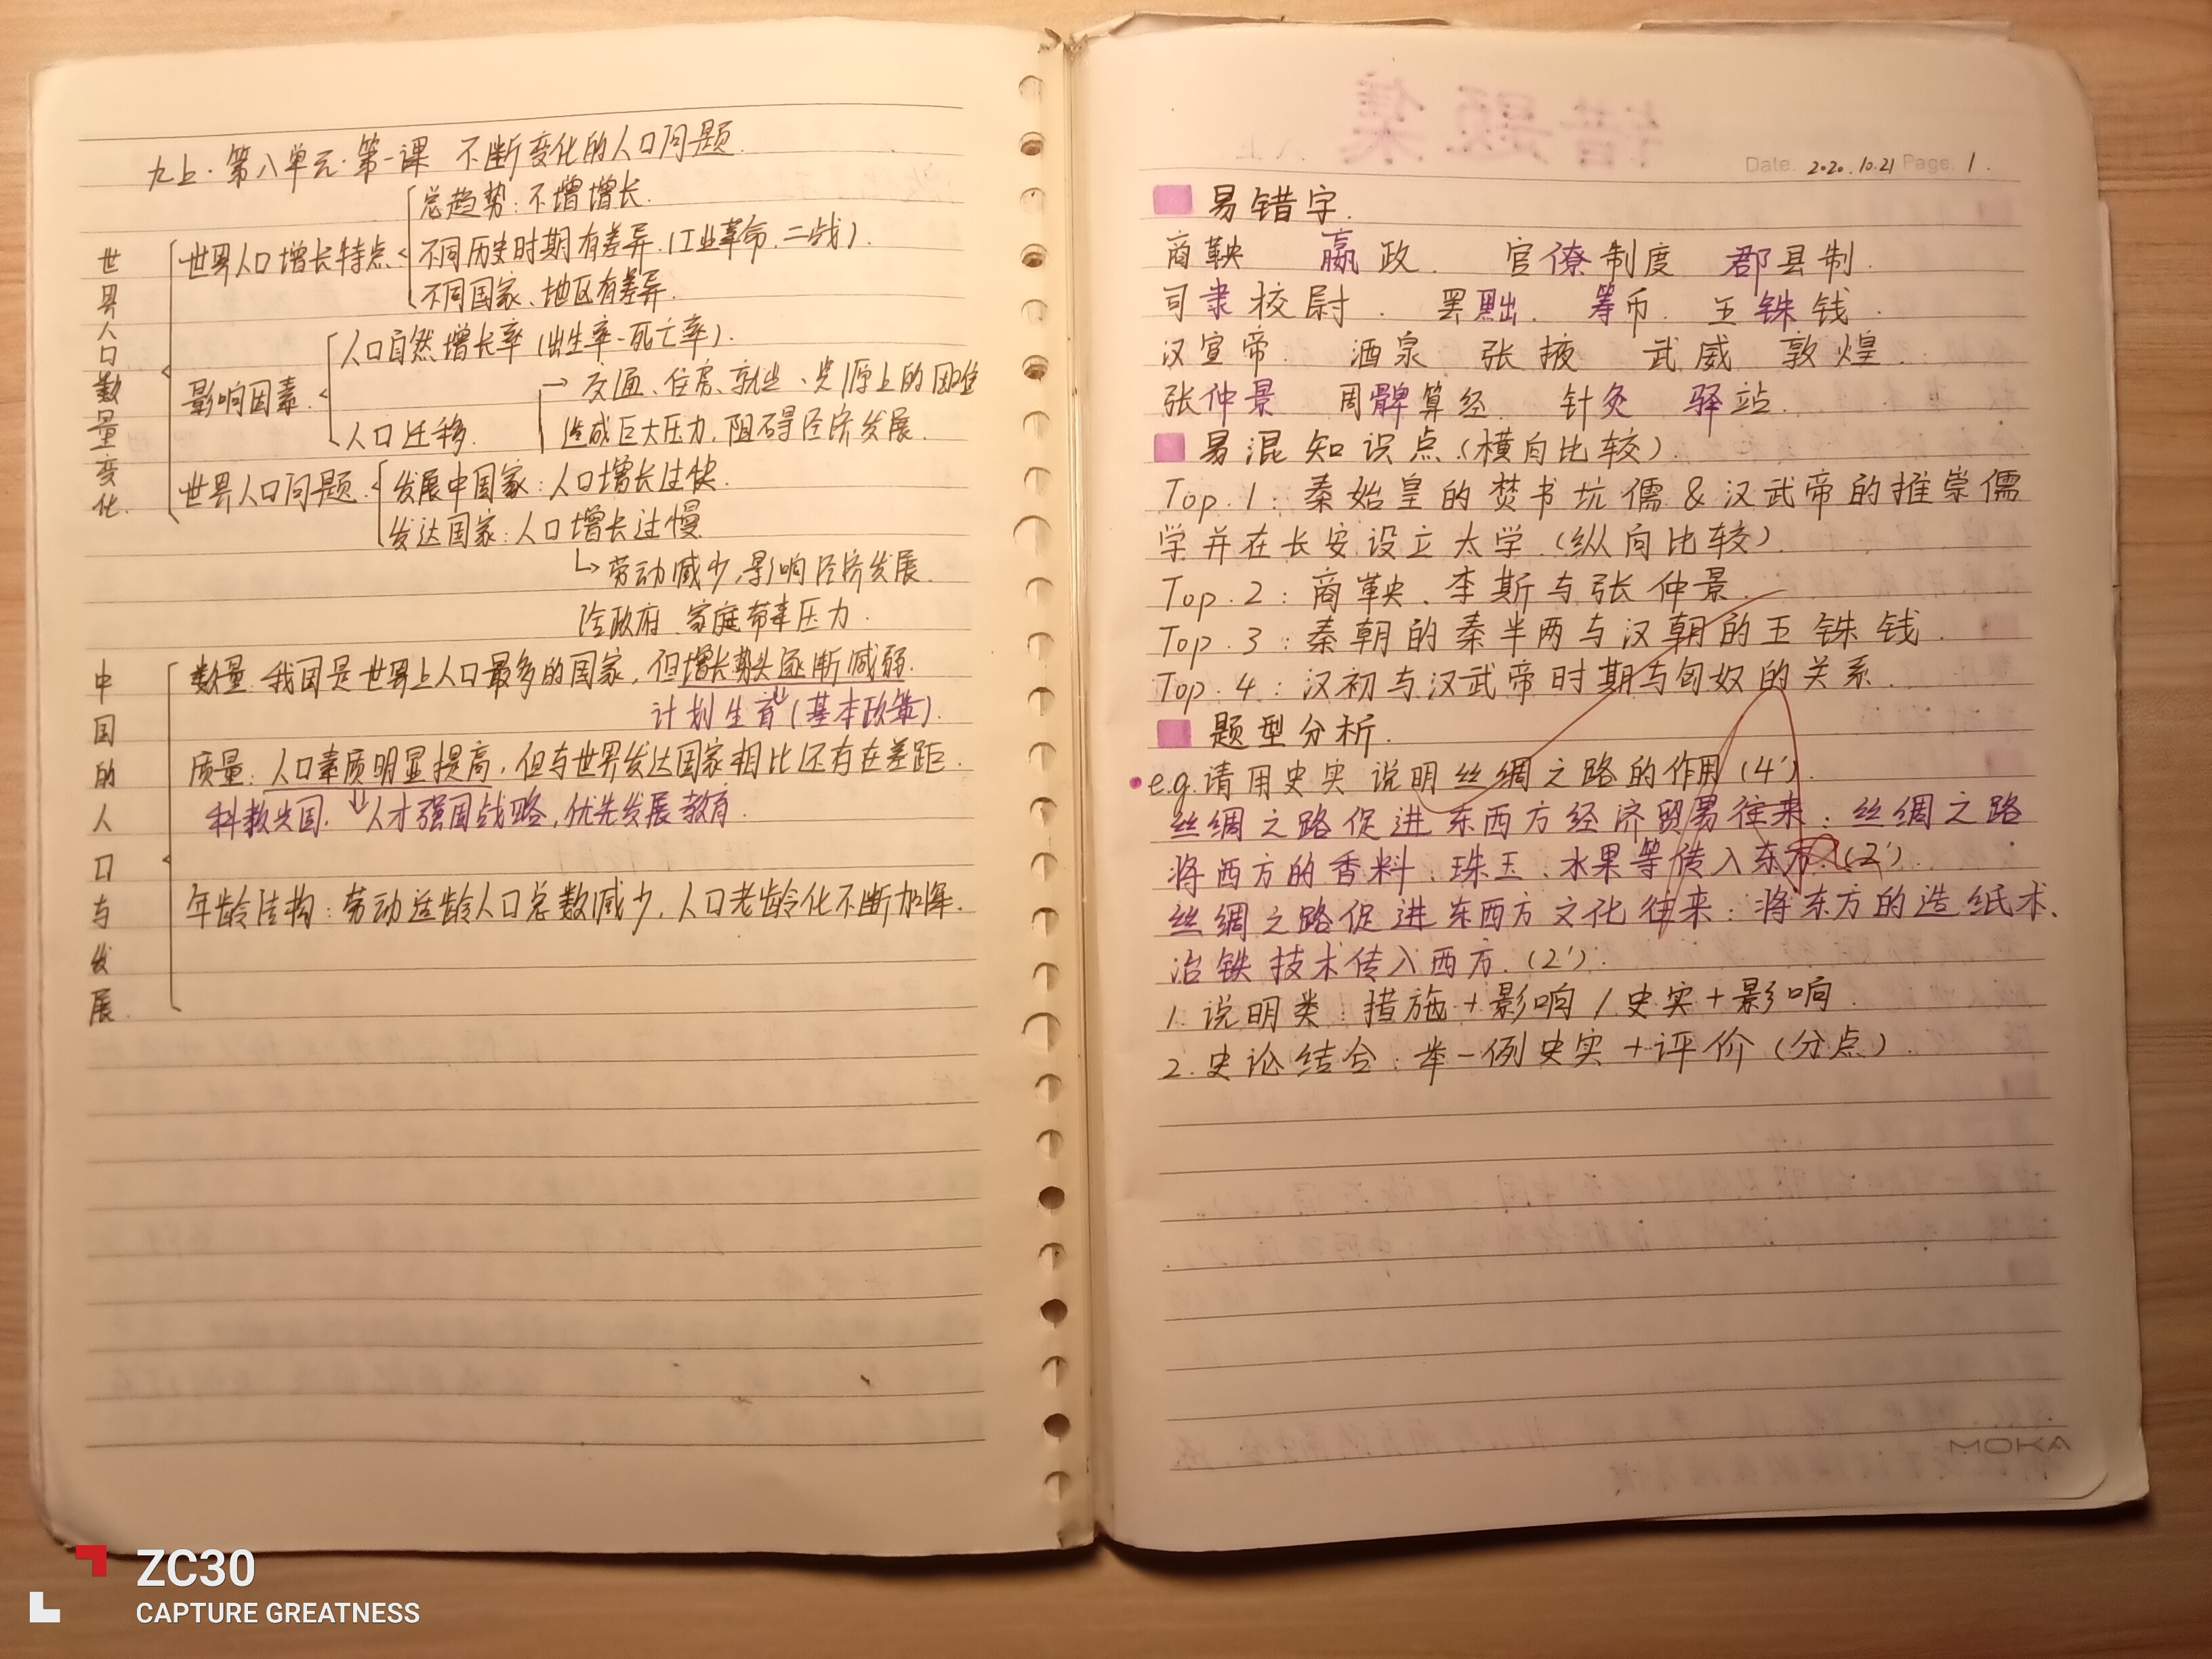 九上·第八单元·第一课 不断变化的人口问题
世界人口数量变化
世界人口增长特点
总趋势:不增增长.
不同历史时期有差异.(工业革命.二战).
不同国家、地区有差异.
影响因素.
人口自然增长率(出生率-死亡率).
人口迁移.
→交通、住房、就业、资源上的困难
造成巨大压力,阻碍经济发展.
世界人口问题.
发展中国家:人口增长过快.
发达国家:人口增长过慢
↳劳动减少,影响经济发展.
给政府、家庭带来压力.
中国的人口与发展
数量:我国是世界上人口最多的国家,但增长势头逐渐减弱.
计划生育(基本政策).
质量:人口素质明显提高,但与世界发达国家相比还存在差距.
科教兴国.人才强国战略,优先发展教育.
年龄结构:劳动适龄人口总数减少,人口老龄化不断加深.
错题集
Date. 2020.10.21 Page. 1.
易错字.
商鞅 嬴政. 官僚制度 郡县制.
司隶校尉. 罢黜. 筹币. 五铢钱.
汉宣帝. 酒泉 张掖 武威 敦煌.
张仲景 周髀算经. 针灸 驿站.
易混知识点.(横向比较).
Top.1:秦始皇的焚书坑儒&汉武帝的推崇儒
学并在长安设立太学.(纵向比较).
Top.2:商鞅、李斯与张仲景.
Top.3:秦朝的秦半两与汉朝的五铢钱.
Top.4:汉初与汉武帝时期与匈奴的关系.
题型分析.
e.g.请用史实说明丝绸之路的作用(4').
丝绸之路促进东西方经济贸易往来:丝绸之路
将西方的香料、珠玉、水果等传入东方.(2').
丝绸之路促进东西方文化往来:将东方的造纸术、
冶铁技术传入西方.(2').
1.说明类:措施+影响/史实+影响.
2.史论结合:举一例史实+评价(分点).
MOKA
ZC30
CAPTURE GREATNESS